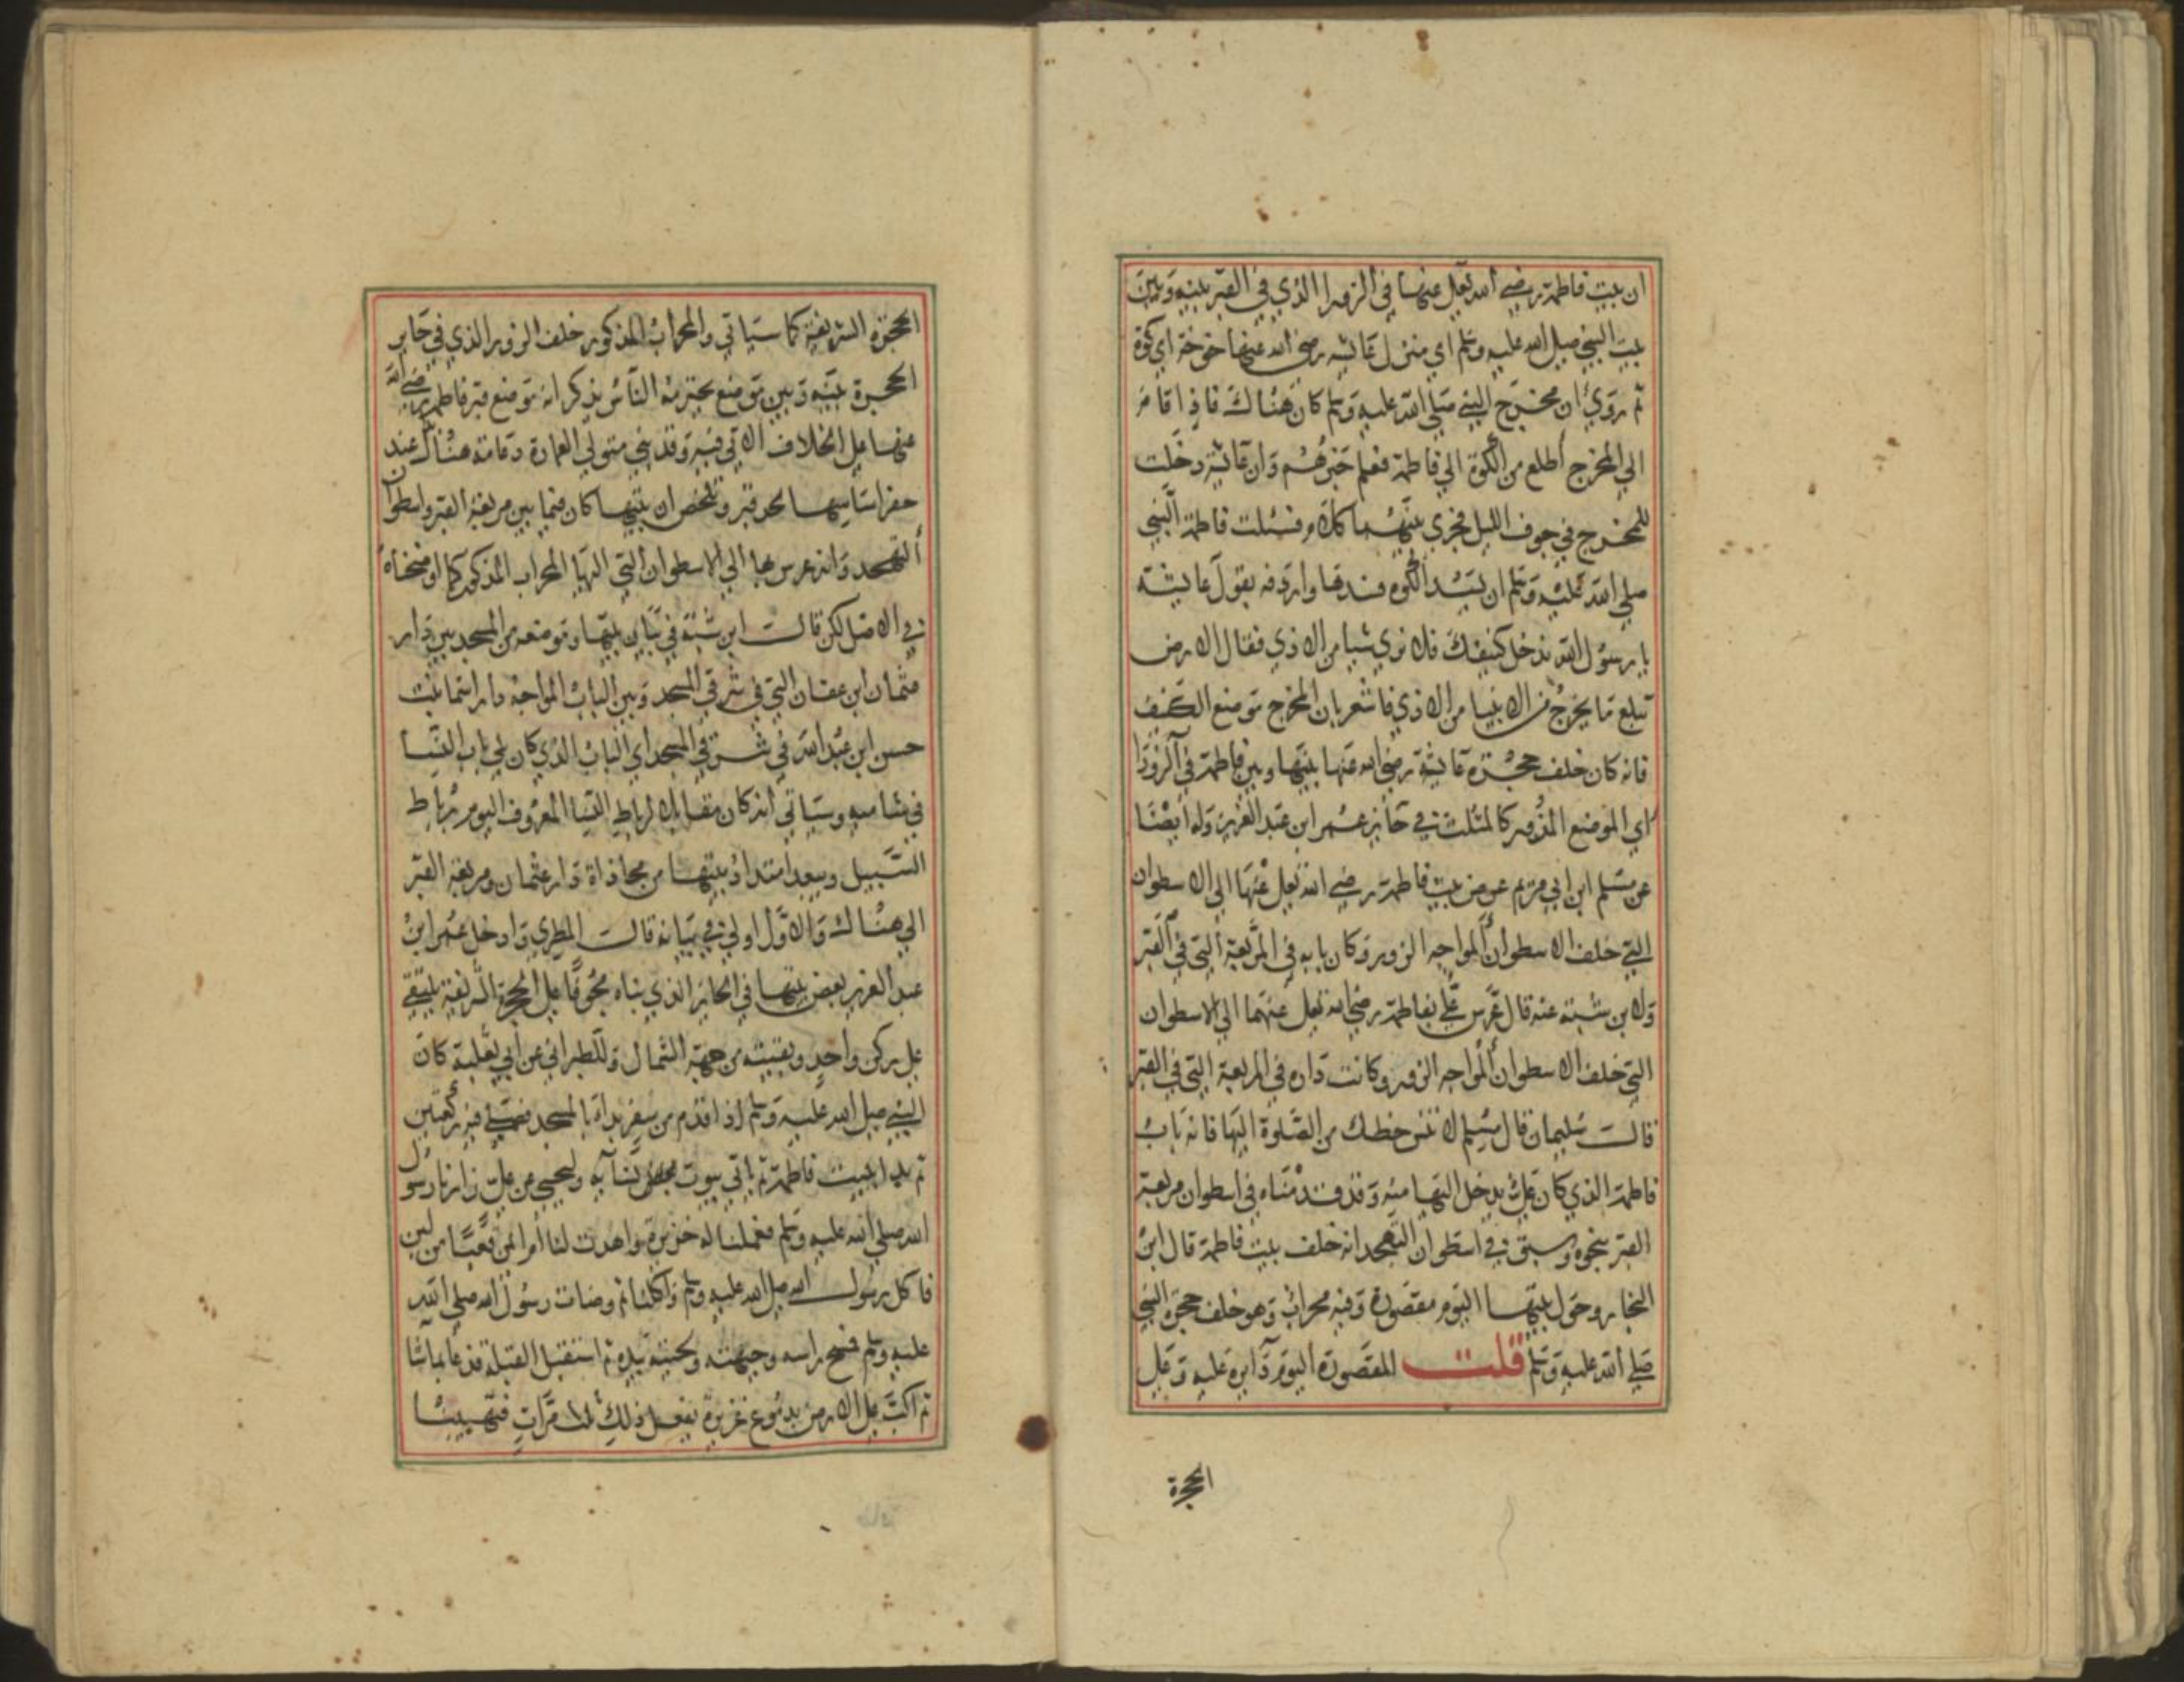 ان بيت فاطمة رضي الله تعالى عنها في الزورا الذي في القبر بينه وبين
بيت النبي صلى الله عليه وسلم اي منزل عائشه رضي الله عنها خوخة اي كوة
ثم روي ان مخرج النبي صلى الله عليه وسلم كان هناك فاذا قام
الي المخرج أطلع من الكوة الي فاطمة فعلم خبرهم وان عائشة دخلت
للمخرج في جوف الليل فجري بينهما كلام فسئلت فاطمة النبي
صلي الله عليه وسلم ان يسد الكوه فسدها واردفه بقول عايشة
يا رسول الله ندخل كنيفك فلا نري شيا من الاذي فقال الارض
تبلع ما يخرج من الانبيا من الاذي فاشعر بان المخرج موضع الكنيف
فانه كان خلف حجرة عايشة رضي الله عنها بينها وبين فاطمة في الزورا
اي الموضع المزور كالمثلث في حايز عمر ابن عبد العزيز وله ايضا
عن مسلم ابن ابي مريم عرض بيت فاطمة رضي الله تعالى عنها الي الاسطوان
التي خلف الاسطوان المواجه الزور وكان بابه في المربعة التي في القبر
ولابن شبة عنه قال عرس علي بفاطمة رضي الله تعالى عنهما الي الاسطوان
التي خلف الاسطوان المواجه الزور وكانت داره في المربعة التي في القبر
قالت سليمان قال مسلم لا تنس حظك من الصلوة اليها فانه باب
فاطمة الذي كان علي يدخل اليها منه وقد قدمناه في اسطوان مربعة
القبر بنحوه وسبق في اسطوان التهجد انه خلف بيت فاطمة قال ابن
النجار وحول بيتها اليوم مقصورة وفيه محراب وهو خلف حجرة النبي
صلي الله عليه وسلم قلت المقصورة اليوم دايرة عليه وعلى
الحجرة
الحجرة الشريفة كما سياتي والمحراب المذكور خلف الزور الذي في حايز
الحجرة بينه وبين موضع يحترمه الناس يذكر انه موضع قبر فاطمة رضي الله
عنها على الخلاف الاتي فيه وقد بني متولي العمارة دعامة هناك عند
حفر اساسها لحد قبر وتلخص ان بيتها كان فيما بين مربعة القبر واسطوان
التهجد وانه عرس بها الي الاسطوان التي اليها المحراب المذكور كما اوضحناه
في الاصل لكن قالت ابن شبة في بيان بيتها وموضعه من المسجد بين دار
عثمان ابن عفان التي في شرقي المسجد وبين الباب المواجه دار اسما بنت
حسن ابن عبد الله في شرقي المسجد اي الباب الذي كان يلي باب النسا
في شاميه وسياتي انه كان مقابلا لرباط النسا المعروف اليوم برباط
السبيل ويبعد امتداد بيتها من محاذاة دار عثمان ومربعة القبر
الي هناك والاول اولي في بيانه قالت المطري وادخل عمر ابن
عبد العزيز بعض بيتها في الحايز الذي بناه محوفا على الحجرة الشريفة يلتقي
على ركن واحد وبقيته من جهة الشمال وللطبراني عن ابي ثعلبة كان
النبي صلى الله عليه وسلم اذا قدم من سفر بداء بالمسجد فصلي فيه ركعتين
ثم بدا ببيت فاطمة ثم ياتي بيوت نسآيه وليحيي عن علي زارنا رسول
الله صلي الله عليه وسلم فعملنا له خزيرة واهدت لنا ام ايمن قعبا من لبن
فاكل رسول الله صلى الله عليه وسلم واكلنا ثم وضات رسول الله صلي الله
عليه وسلم فمسح راسه وجبهته ولحيته بيده ثم استقبل القبلة فدعا بماشا
ثم اكب على الارض بدموع غزيرة يفعل ذلك مرات فتهيبنا